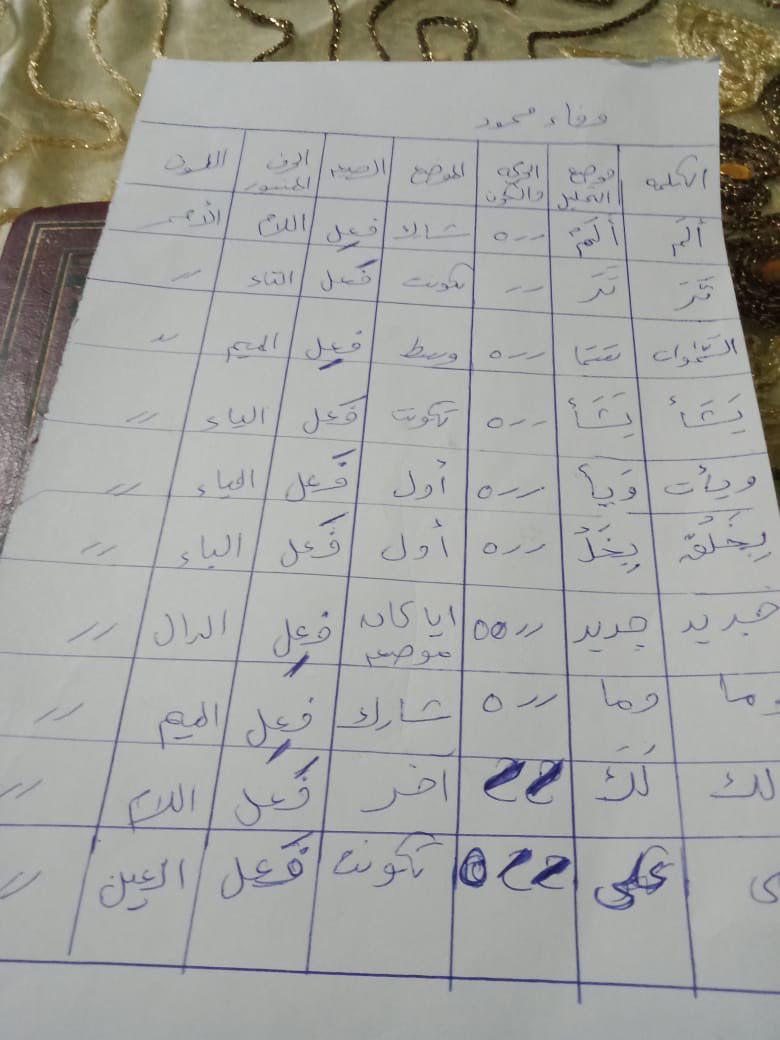 وفاء محمود
الكلمه موضع التحليل الحركه والسكون الموضع الصيغه الحرف المكسور اللون
ألَم ألَمْ --ه شارك فعِل اللام الأحمر
تَرَ تَرَ -- تكونت فَعل التاء "
السَّموات سَمَا --ه وسط فعِل الميم "
يَشَأ يَشَأ --ه تكونت فَعل الياء "
ويأت وَيأ --ه أول فَعل الياء "
بِخَلْق بِخَلْ --ه أول فَعل الباء "
جديد جديد --هه ايا كان موضعه فعِل الدال "
وما وما --ه شارك فعِل الميم "
لك لَكَ -- آخر فَعل اللام "
على --ه تكونت فَعل العين "